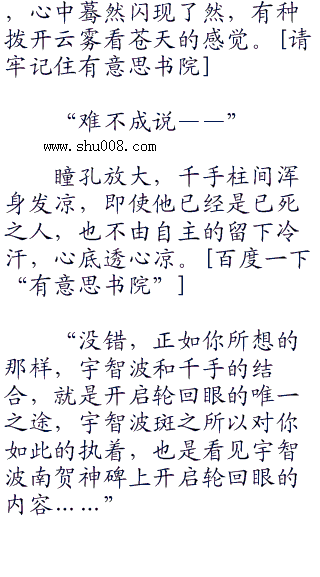 ，心中蓦然闪现了然，有种
拨开云雾看苍天的感觉。[请
牢记住有意思书院]
“难不成说——”
www.shu008.com
瞳孔放大，千手柱间浑
身发凉，即使他已经是已死
之人，也不由自主的留下冷
汗，心底透心凉。[百度一下
“有意思书院”]
“没错，正如你所想的
那样，宇智波和千手的结
合，就是开启轮回眼的唯一
之途，宇智波斑之所以对你
如此的执着，也是看见宇智
波南贺神碑上开启轮回眼的
内容……”